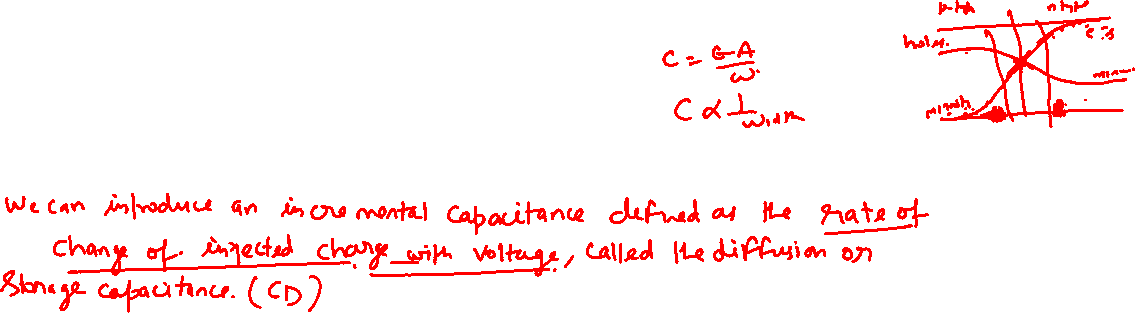 p-type n type
holes. e's
C = ϵA/W.
C ∝ 1/width
We can introduce an incremental capacitance defined as the rate of
change of injected charge with voltage, called the diffusion or
Storage capacitance. (CD)